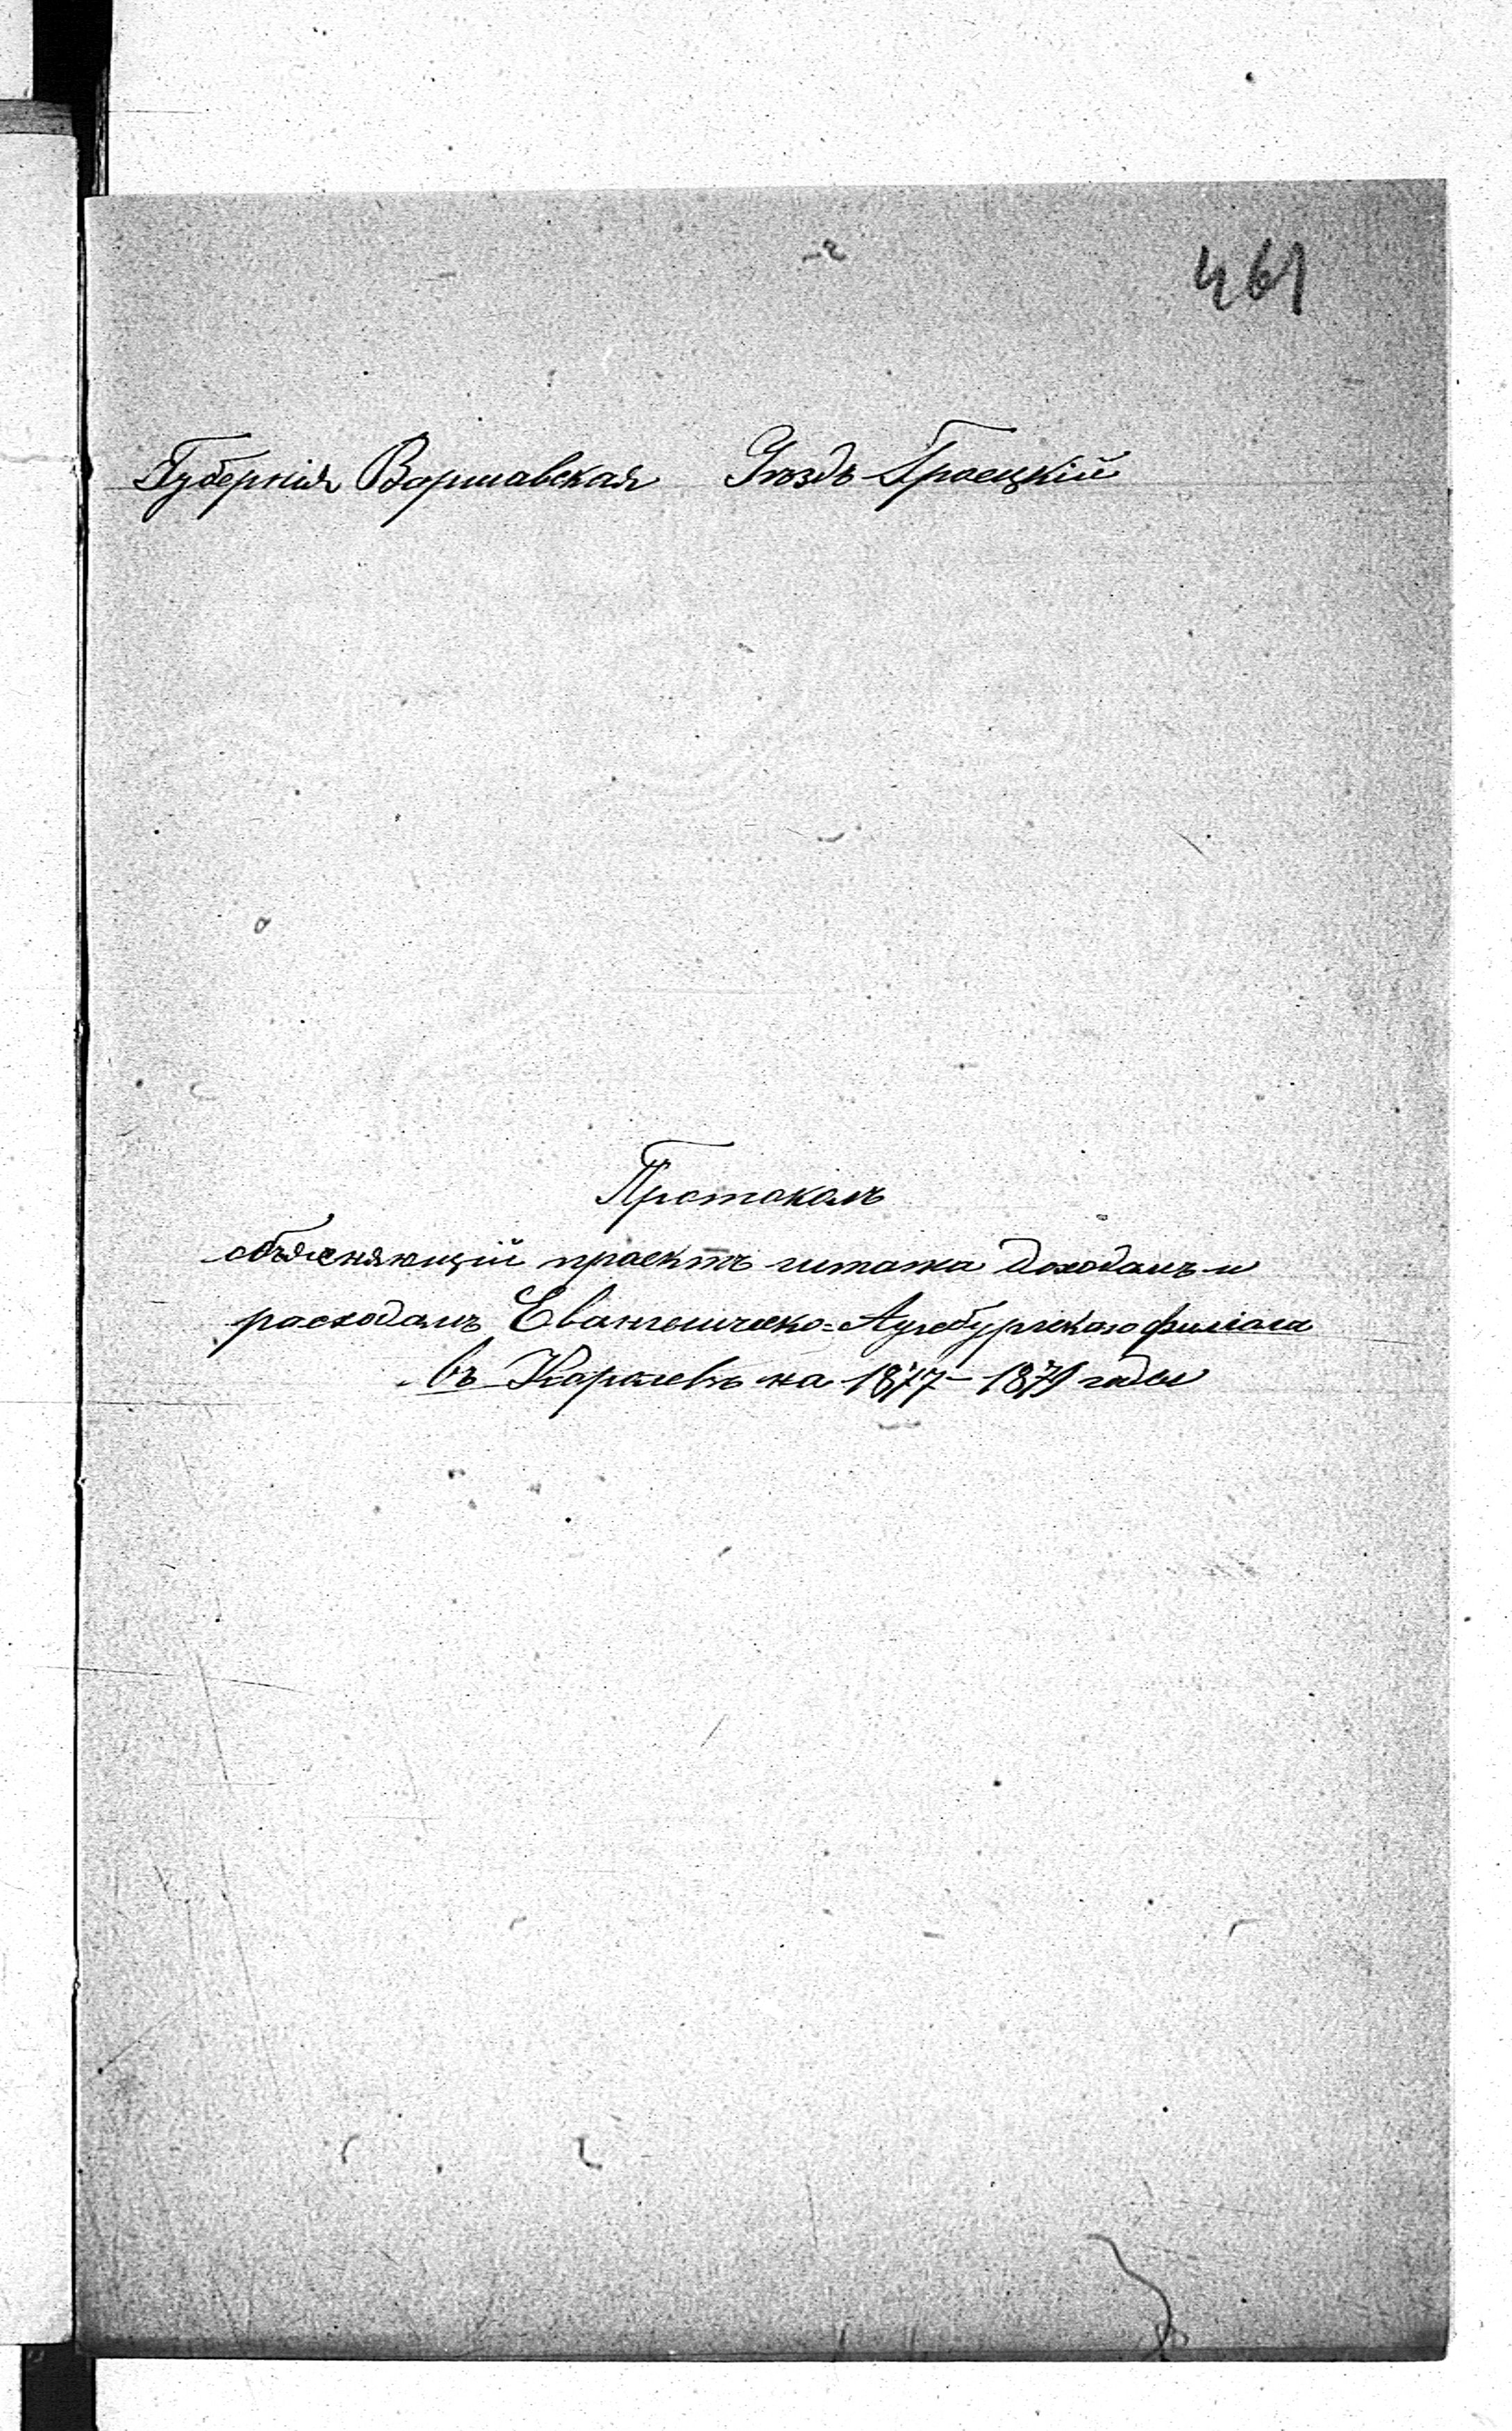 461
Губернія Варшавская Уѣздъ Гроецкій
Протоколъ
объясняющій проектъ штата доходамъ и
расходамъ Евангелическо=Аугсбургскаго филіала
въ Каролевѣ на 1877–1879 годы